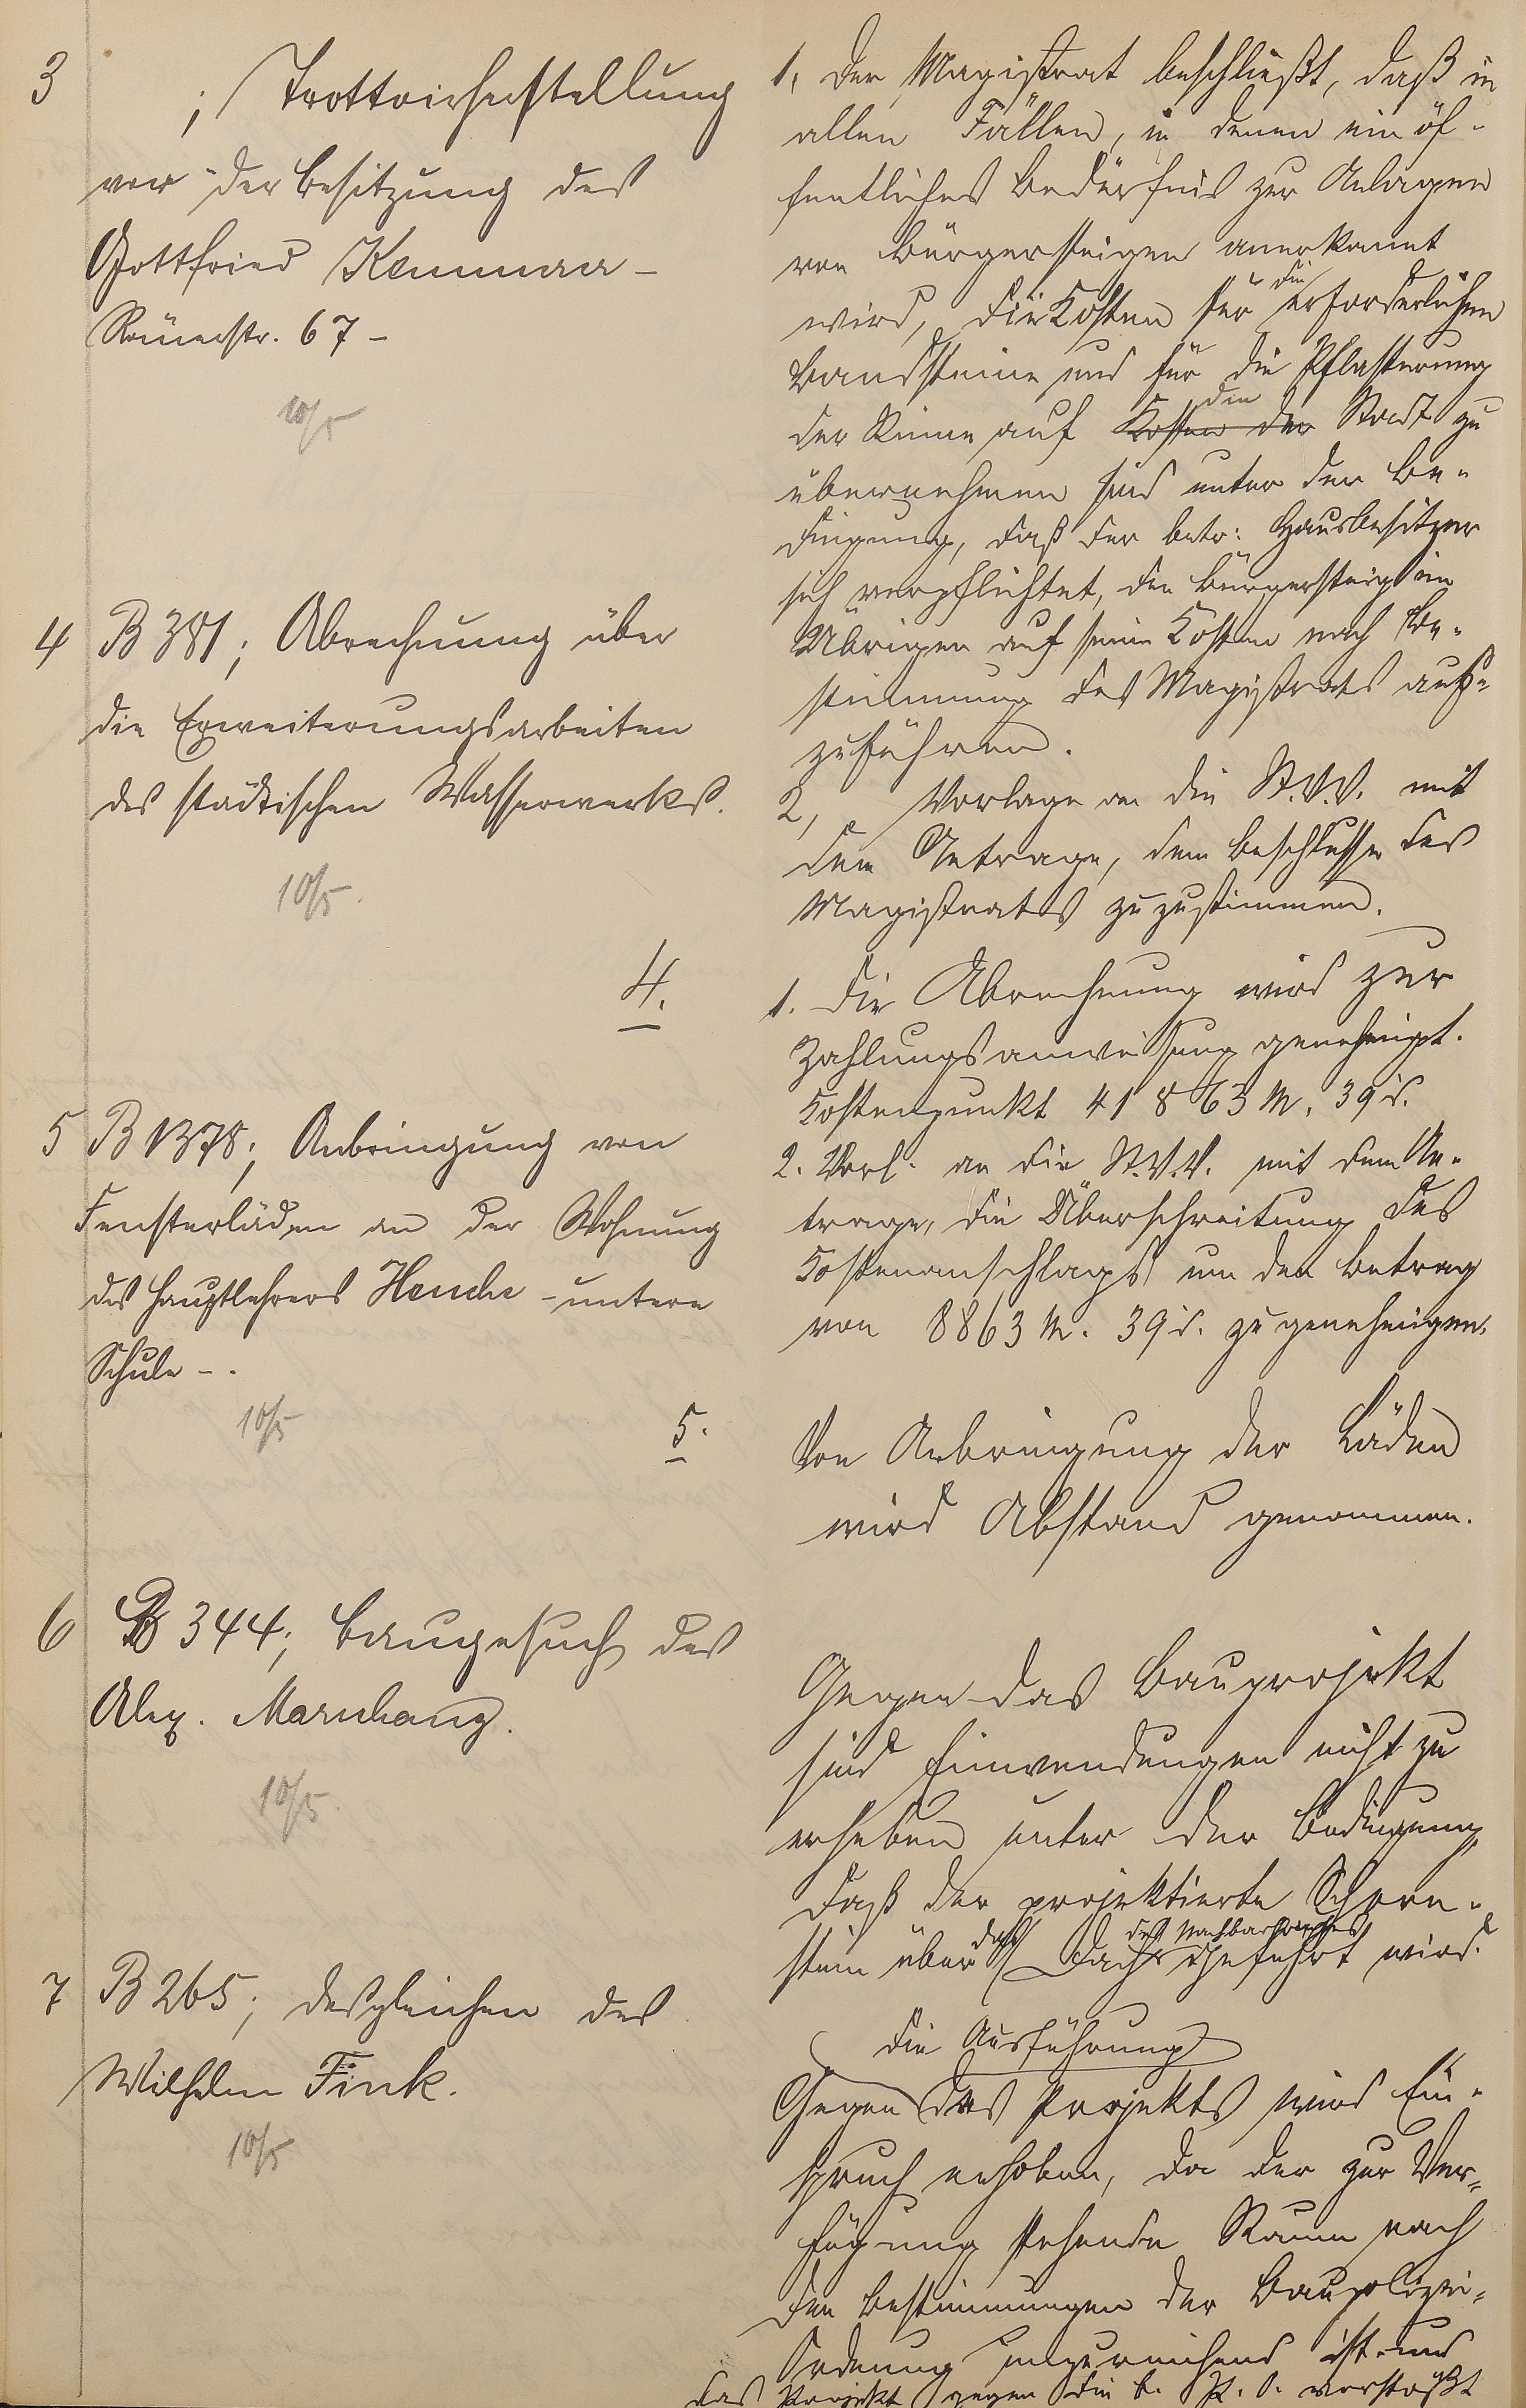 3 ; Trottoirherstellung
vor der Besitzung des
Gottfried Kemmann -
Römerstr. 67 -
10/5
1. Der Magistrat beschließt, daß in
allen Fällen, in denen ein öf-
fentliches Bedürfnis zur Anlagen
von Bürgersteigen anerkannt
wird, die Kosten für die erforderlichen
Bandsteine und für die Pflasterung
der Rinne auf Kosten der die Stadt zu
übernehmen sind unter der Be-
dingung, daß der betr: Hausbesitzer
sich verpflichtet, den Bürgersteig im
Übrigen auf seine Kosten nach Be-
stimmung des Magistrats aus-
zuführen.
2, Vorlage an die St.V.V. mit
dem Antrage, dem Beschlusse des
Magistrats zuzustimmen.
4 B 381; Abrechnung über
die Erweiterungsarbeiten
des städtischen Wasserwerks.
10/5.
4.
1. Die Abrechnung wird zur
Zahlungsanweisung genehmigt.
Kostenpunkt 41 863 M. 39 d.
2. Vorl. an die St.V.V. mit dem An-
trage, die Überschreitung des
Kostenanschlags um den Betrag
von 8863 M. 39 d. zu genehmigen.
5 B 1378; Anbringung von
Fensterläden an der Wohnung
des Hauptlehrers Henche - untere
Schule -.
10/5
5.
Von Anbringung der Läden
wird Abstand genommen.
6 B 344; Baugesuch des
Alex.
10/5.
Gegen das Bauprojekt
sind Einwendungen nicht zu
erheben unter der Bedingung,
daß der projektierte Schorn-
stein über das Dach des Nachbarhauses geführt wird.
7 B 265; desgleichen des
Wilhelm Fink.
10/5
die Ausführung
Gegen des Projekts wird Ein-
spruch erhoben, da der zur Ver-
fügung stehende Raum nach
den Bestimmungen der Baupolizei-
Ordnung unzureichend ist und
das Projekt gegen die B. P. O. verstößt